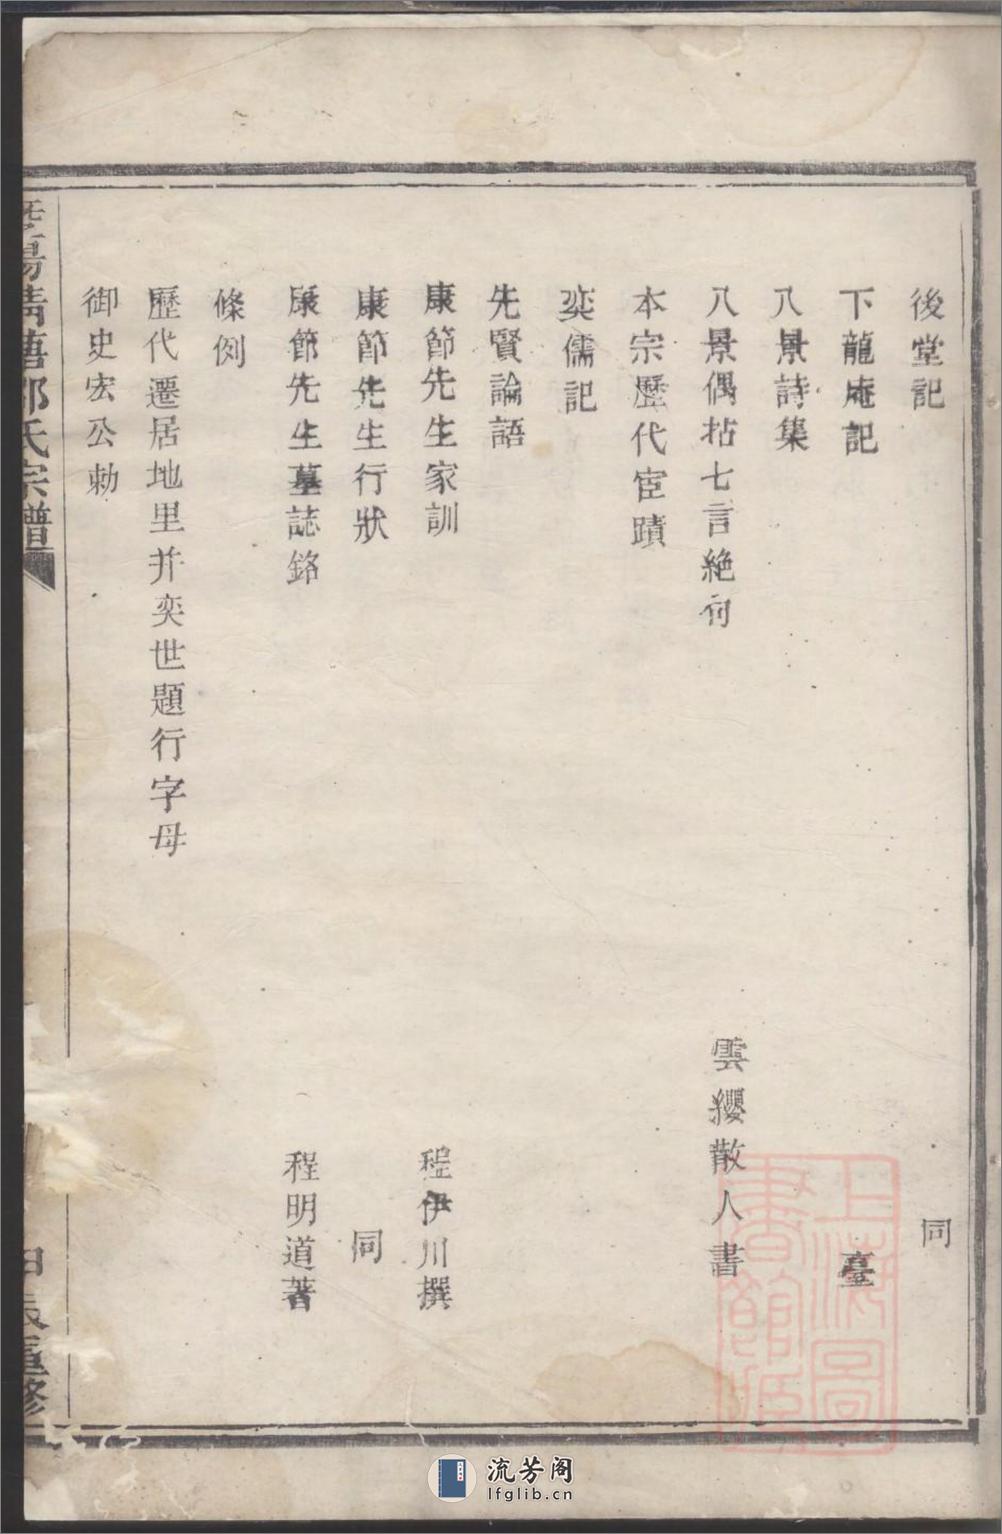 後堂記 同
下龍庵記 臺
八景詩集
八景偶拈七言絶句 雲纓散人書
本宗歷代宦蹟
奕儒記
先賢論語
康節先生家訓 程伊川撰
康節先生行狀 同
康節先生墓誌銘 程明道著
條例
歷代遷居地里并奕世題行字母
御史宏公勅
暨陽清德邵氏宗譜
重修
上海圖書館藏
流芳阁
lfglib.cn